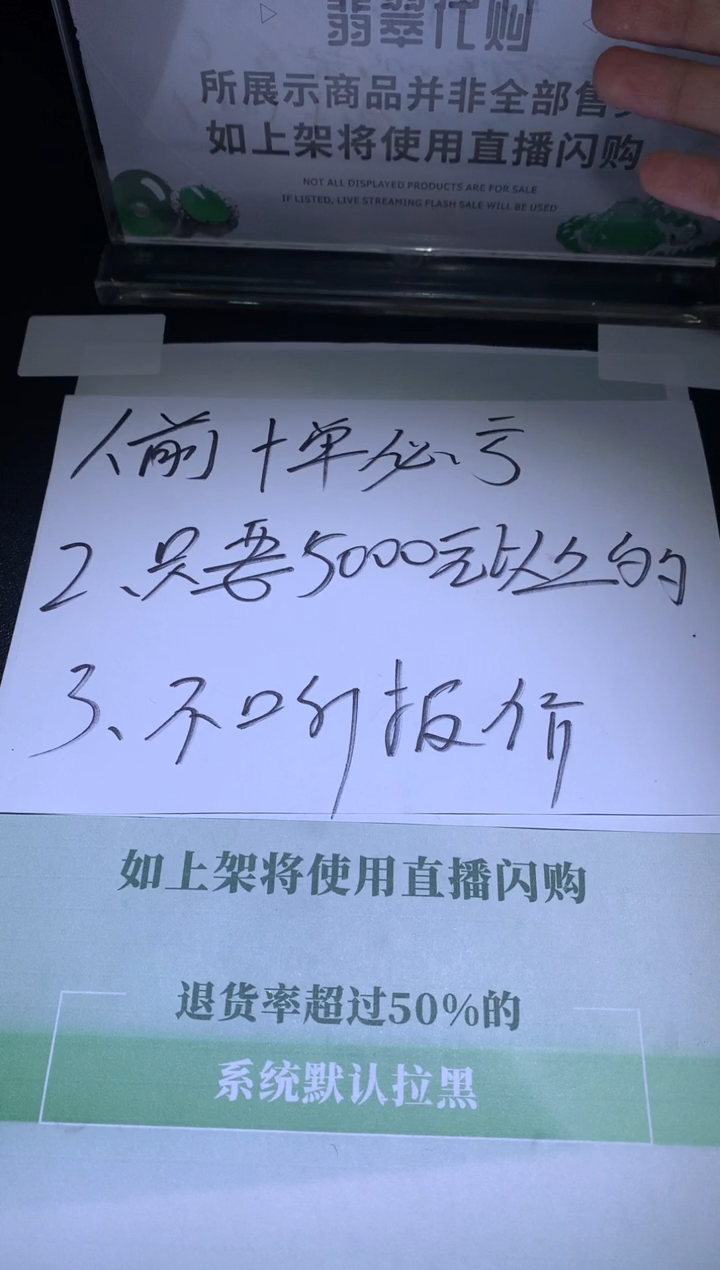 翡翠代购
所展示商品并非全部售
如上架将使用直播闪购
NOT ALL DISPLAYED PRODUCTS ARE FOR SALE
IF LISTED, LIVE STREAMING FLASH SALE WILL BE USED
1、前十单必亏
2、只要5000元以上的
3、不听报价
如上架将使用直播闪购
退货率超过50%的
系统默认拉黑